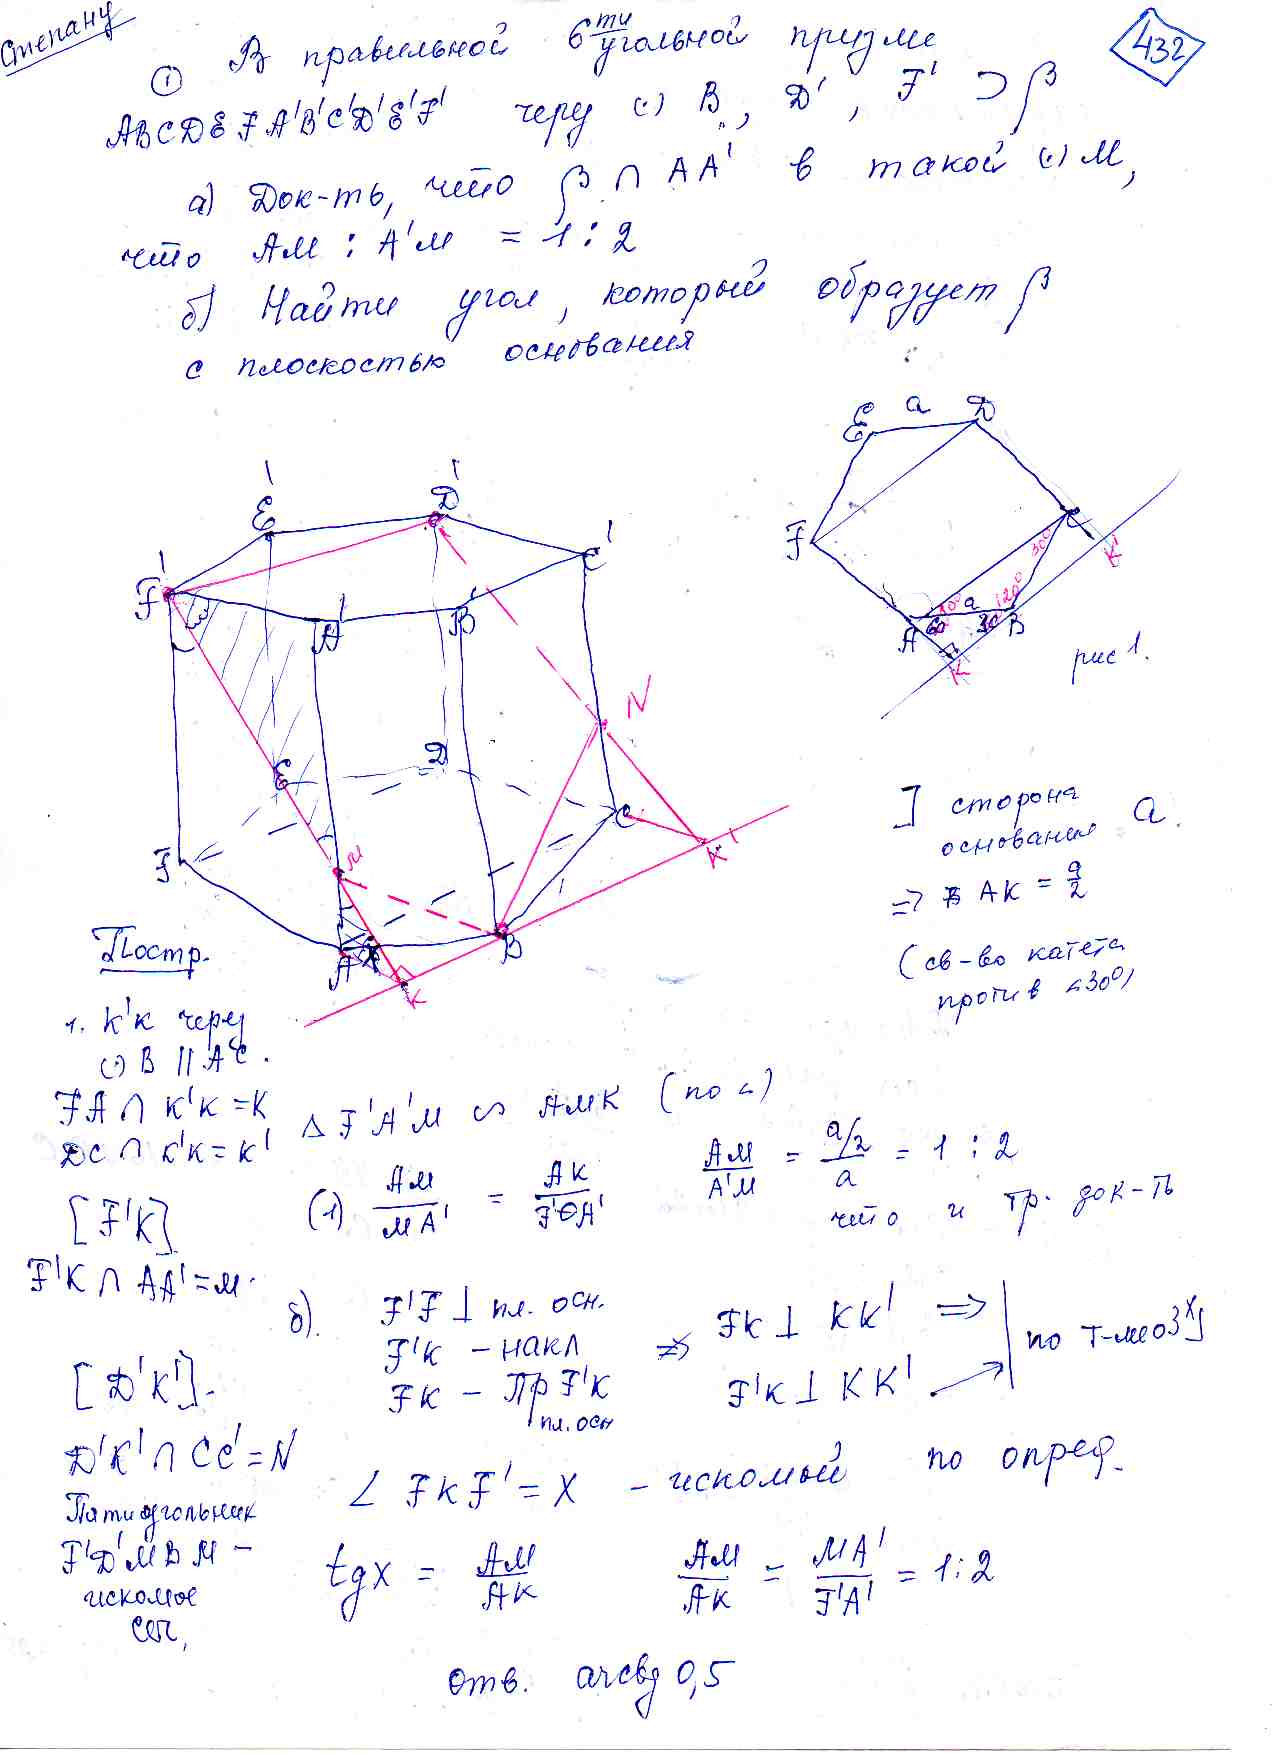 Степану
432
① В правильной 6ти угольной призме
ABCDEFA'B'C'D'E'F' через (·) B, D', F' ⊃ β
а) Док-ть, что β ∩ AA' в такой (·) M,
что AM : A'M = 1 : 2
б) Найти угол, который образует β
с плоскостью основания
E a D
F
C
K'
30°
120°
a
60
30
A
B
K
рис 1.
E'
D'
F'
C'
A'
B'
N
E
D
M
F
C
K'
A
B
K
] сторона
основания a.
=> в AK = a/2
(св-во катета
против <30°)
Постр.
1. K'K через
(·) B || AC.
FA ∩ K'K = K
DC ∩ K'K = K'
[F'K]
F'K ∩ AA' = M.
[D'K'].
D'K' ∩ CC' = N
Пятиугольник
F'D'MBM –
искомое
сеч,
Δ F'A'M ∽ AMK (по <)
(1) AM/MA' = AK/F'A'
AM/A'M = a/2/a = 1 : 2
что и тр. док-ть
б).
F'F ⊥ пл. осн.
F'K – накл
FK – пр F'K пл. осн
=> FK ⊥ KK' =>
F'K ⊥ KK'
по т-ме о 3х ⊥
∠ FKF' = X – искомый по опред.
tgx = AM/AK
AM/AK = MA'/F'A' = 1:2
Отв. arctg 0,5